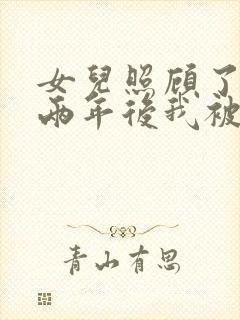 女兒照顧了
兩年後我被
青山有思